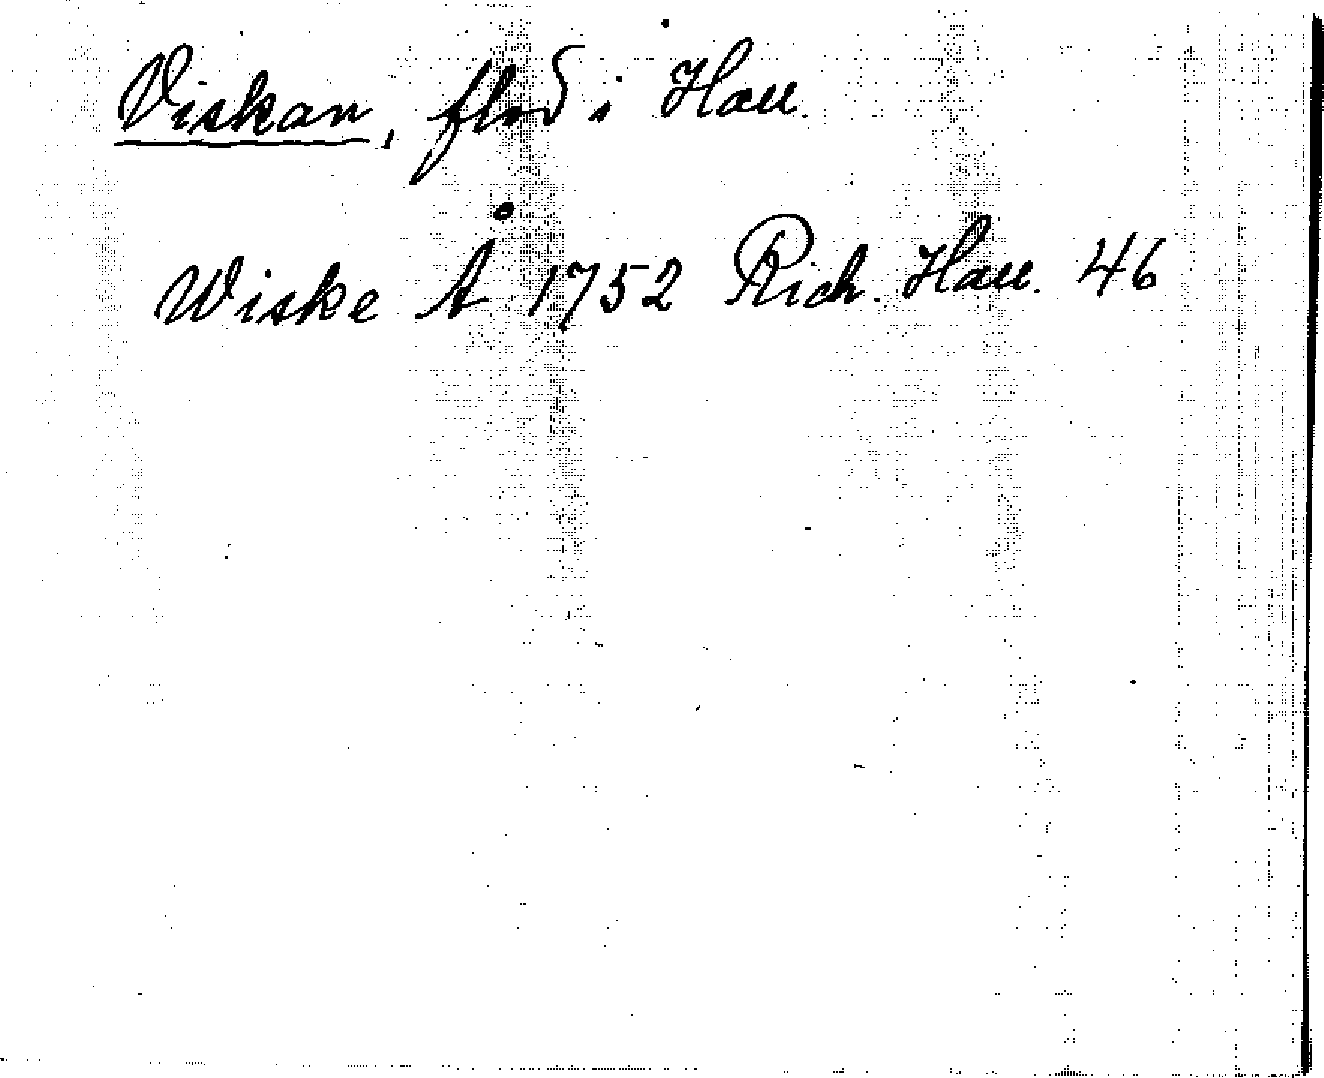 Viskan, flod i Hall.
Wiske Å 1752 Rich. Hall. 46